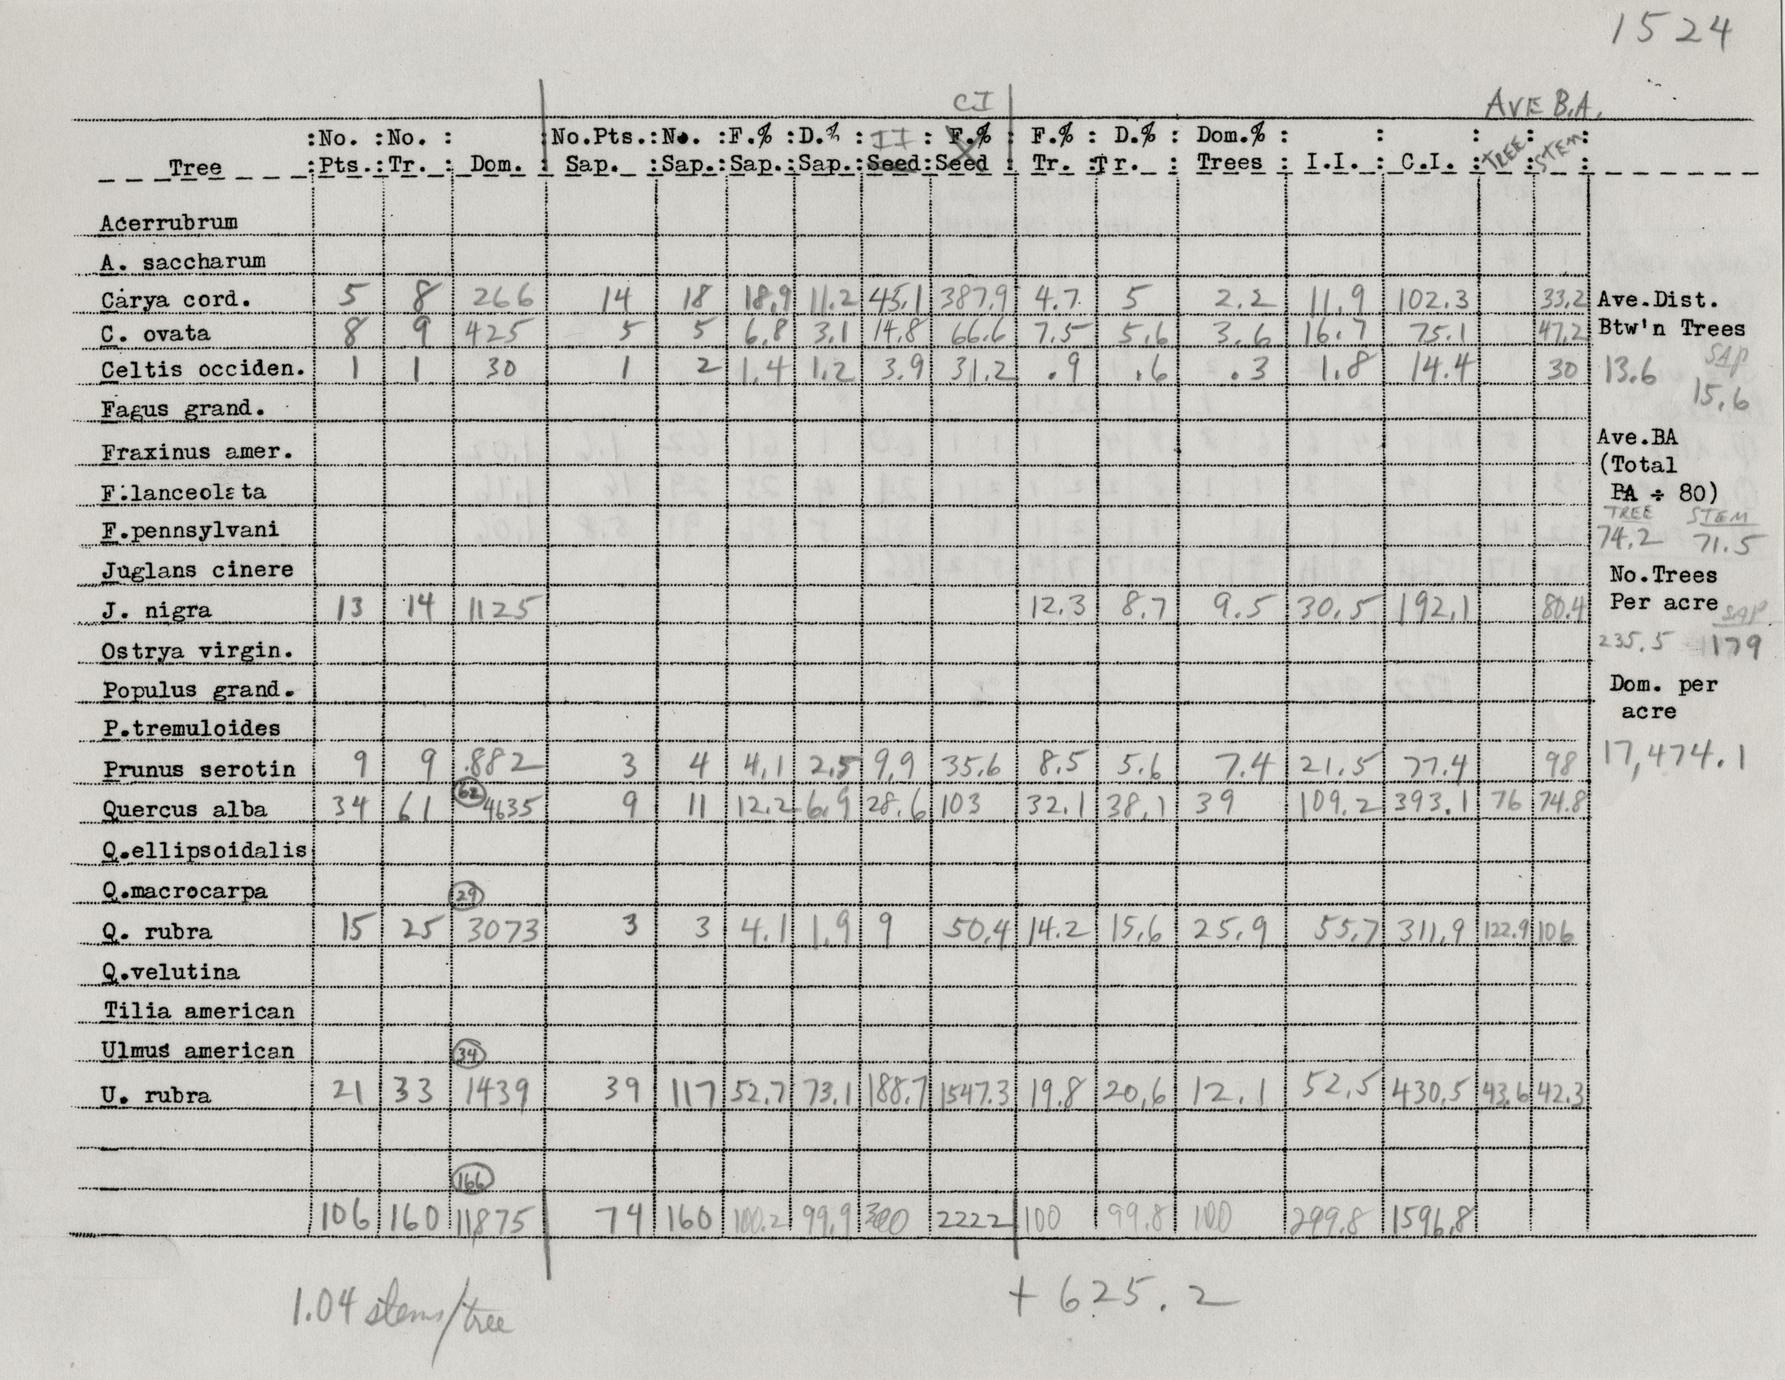 1524
CI
AVE B.A.
:No. :No. : :No.Pts.:No. :F.% :D.% : II : F.% : F.% : D.% : Dom.% : : : : :
Tree :Pts.:Tr. : Dom. : Sap. :Sap.:Sap.:Sap.:Seed:Seed : Tr. :Tr. : Trees : I.I. : C.I. :TREE:STEM:
Acerrubrum
A. saccharum
Carya cord. 5 8 266 14 18 18.9 11.2 45.1 387.9 4.7 5 2.2 11.9 102.3 33.2 Ave.Dist.
C. ovata 8 9 425 5 5 6.8 3.1 14.8 66.6 7.5 5.6 3.6 16.7 75.1 47.2 Btw'n Trees
SAP
Celtis occiden. 1 1 30 1 2 1.4 1.2 3.9 31.2 .9 .6 .3 1.8 14.4 30 13.6
15.6
Fagus grand.
Ave.BA
Fraxinus amer. (Total
F.lanceolata BA ÷ 80)
TREE STEM
F.pennsylvani 74.2 71.5
Juglans cinere No.Trees
J. nigra 13 14 1125 12.3 8.7 9.5 30.5 192.1 80.4 Per acre SAP
Ostrya virgin. 235.5 179
Populus grand. Dom. per
acre
P.tremuloides
Prunus serotin 9 9 882 3 4 4.1 2.5 9.9 35.6 8.5 5.6 7.4 21.5 77.4 98 17,474.1
Quercus alba 34 61 62 4635 9 11 12.2 6.9 28.6 103 32.1 38.1 39 109.2 393.1 76 74.8
Q.ellipsoidalis
Q.macrocarpa 29
Q. rubra 15 25 3073 3 3 4.1 1.9 9 50.4 14.2 15.6 25.9 55.7 311.9 122.9 106
Q.velutina
Tilia american
Ulmus american 34
U. rubra 21 33 1439 39 117 52.7 73.1 188.7 1547.3 19.8 20.6 12.1 52.5 430.5 43.6 42.3
166
106 160 11875 74 160 100.2 99.9 300 2222 100 99.8 100 299.8 1596.8
1.04 stems/tree + 625.2